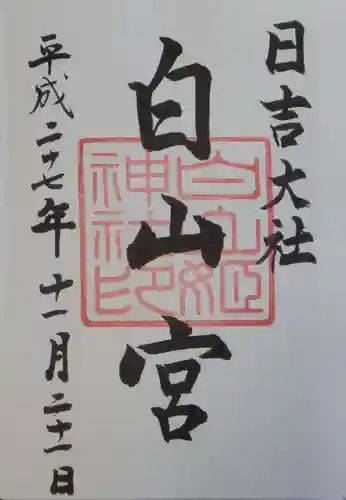 日吉大社
白山宮
白山姫
神社印
平成二十七年十一月二十一日